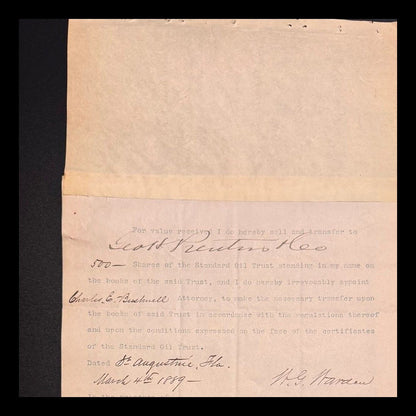 For value received I do hereby sell and transfer to
Geo H & Co
500— Shares of the Standard Oil Trust standing in my name on
the books of the said Trust, and I do hereby irrevocably appoint
Charles E. Bushnell Attorney, to make the necessary transfer upon
the books of said Trust in accordance with the regulations thereof
and upon the conditions expressed on the face of the certificates
of the Standard Oil Trust.
Dated St Augustine, Fla.
March 4th 1889—
W. G. Warden